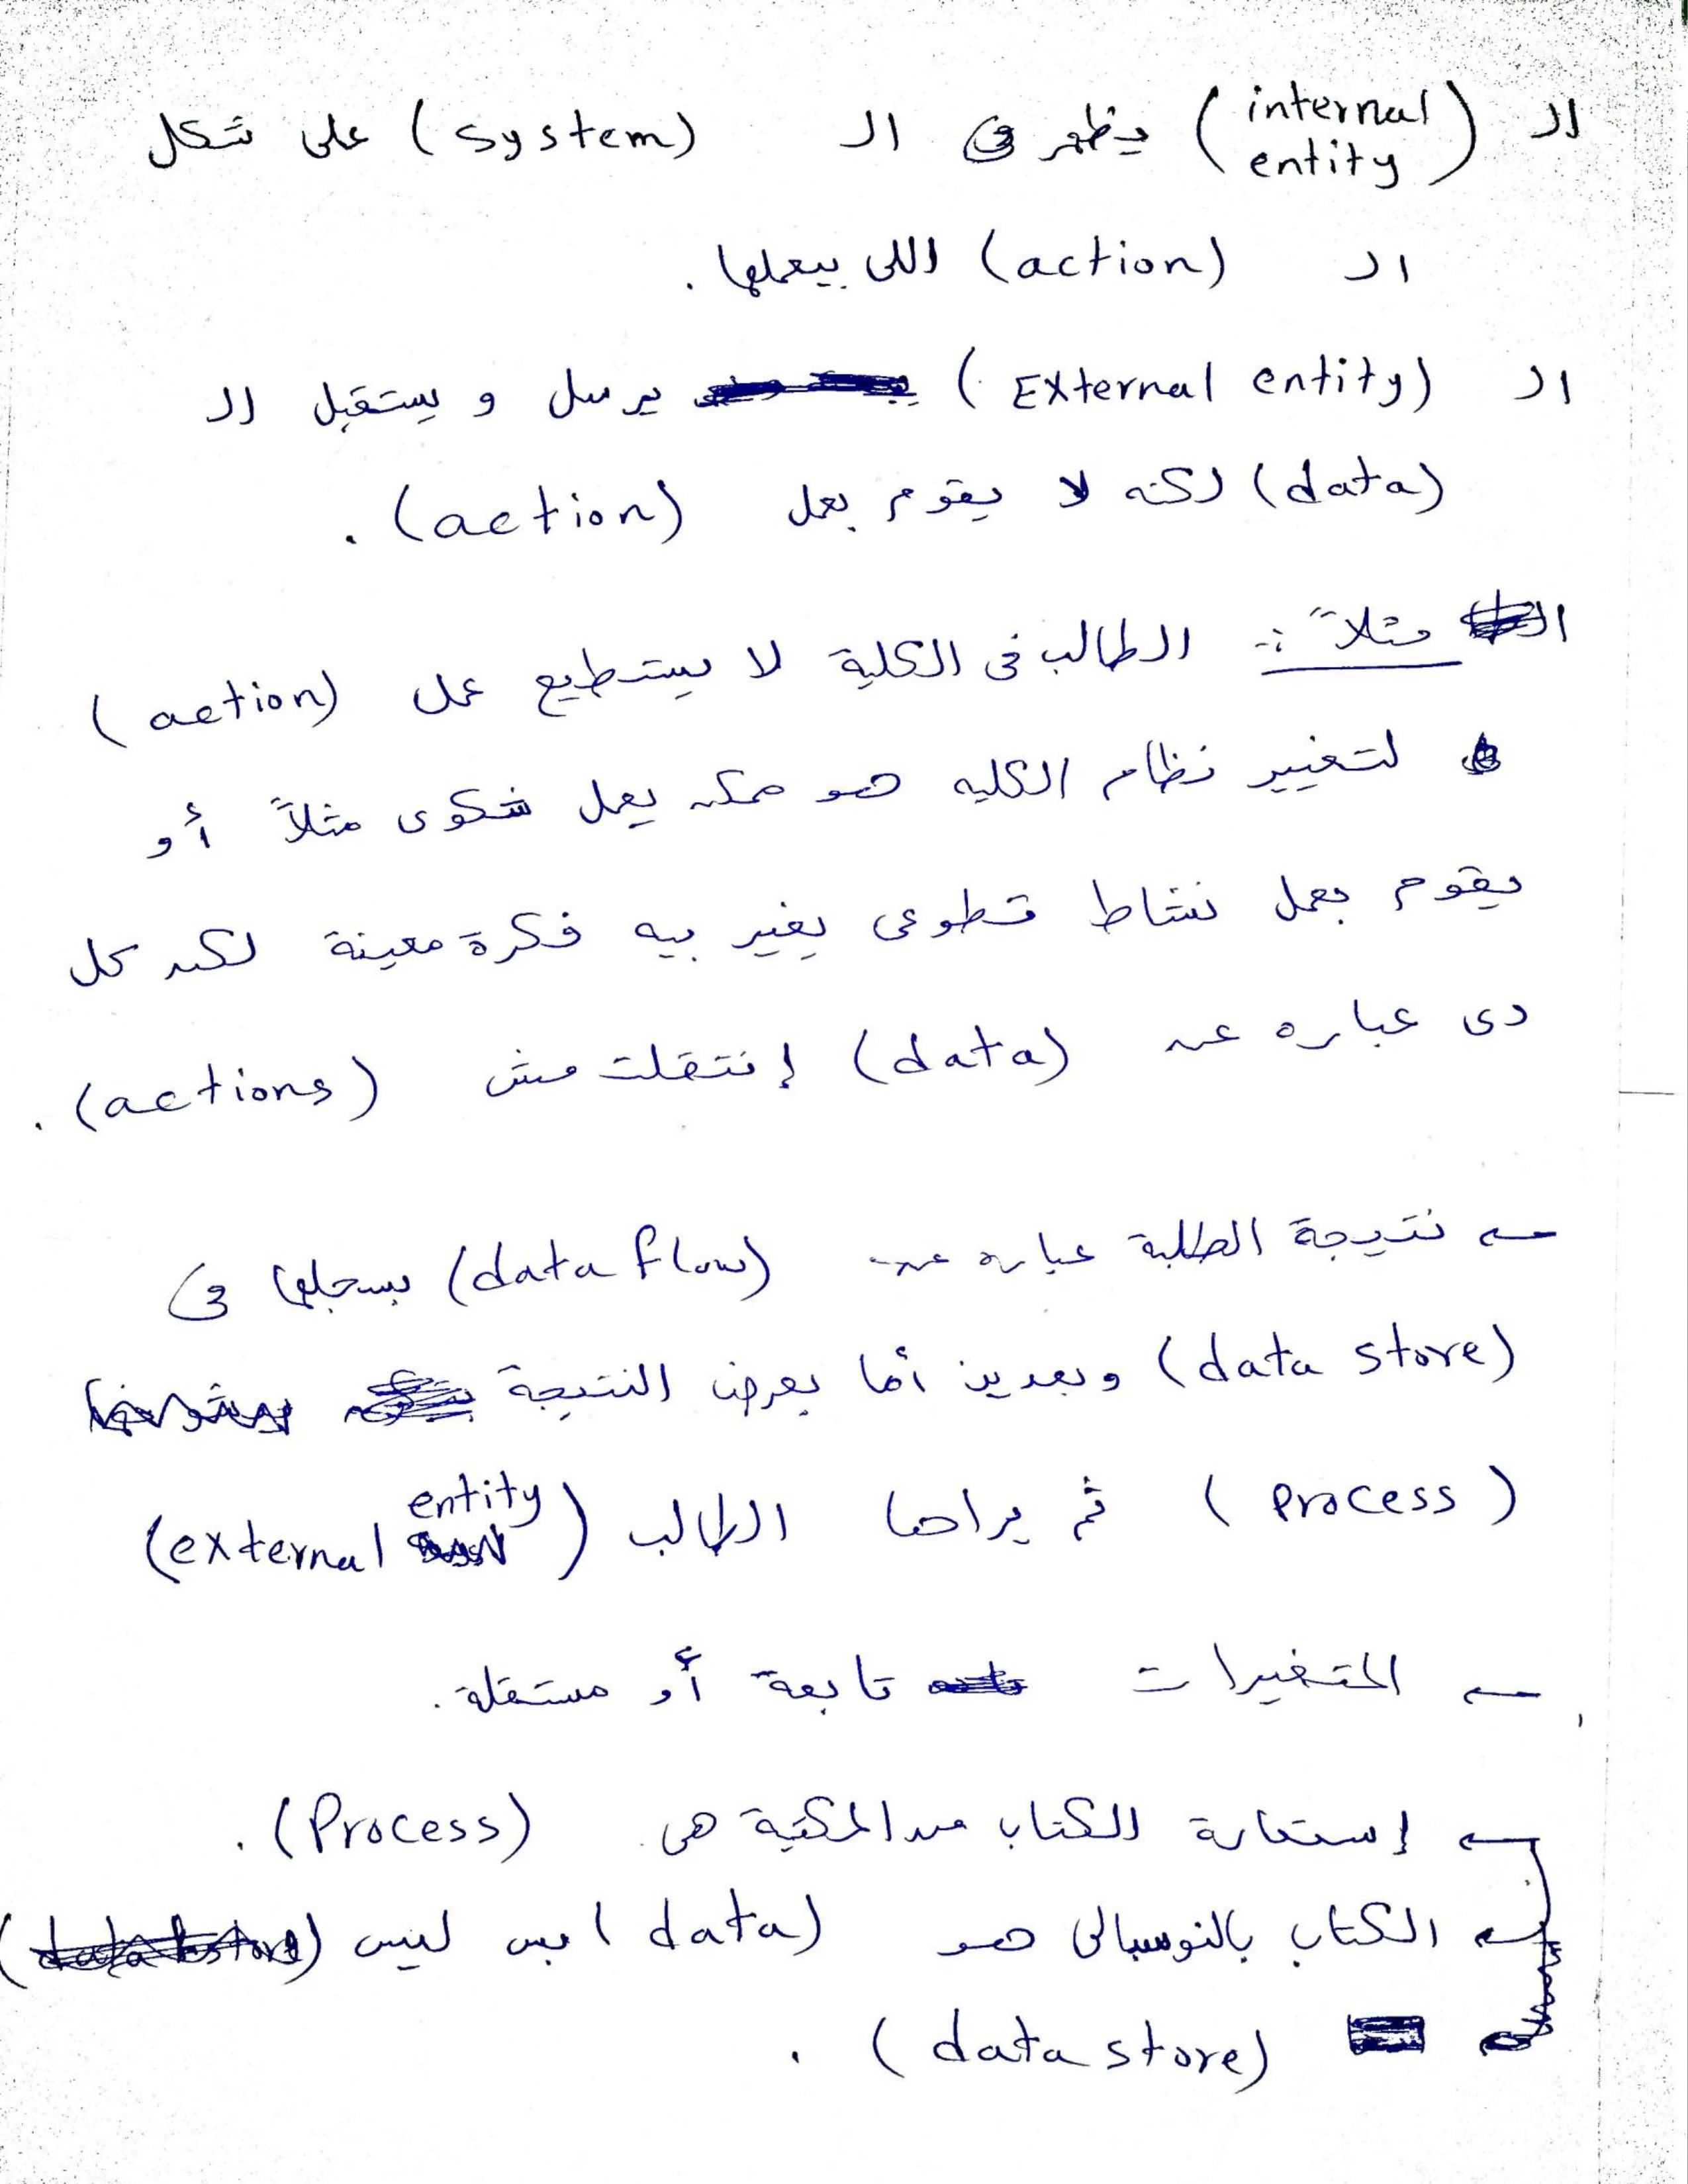 الـ (internal entity) يظهر فى الـ (system) على شكل
الـ (action) اللى بيعملها .
الـ (External entity) يرسل و يستقبل الـ
(data) لكنه لا يقوم بعمل (action) .
مثلاً : الطالب فى الكلية لا يستطيع عمل (action)
لتغيير نظام الكليه هو ممكن يعمل شكوى مثلاً أو
يقوم بعمل نشاط تطوعى يغير بيه فكرة معينة لكن كل
دى عباره عن (data) إنتقلت مش (actions) .
← نتيجة الطلبة عباره عن (data flow) بسجلها فى
(data store) وبعدين أما بعرض النتيجة
(process) ثم يراها الطالب (external entity)
← المتغيرات تابعة أو مستقلة .
← إستعارة الكتاب من المكتبة هى (Process) .
← الكتاب بالنوسبالى هو (data) بس ليس
(data store) .